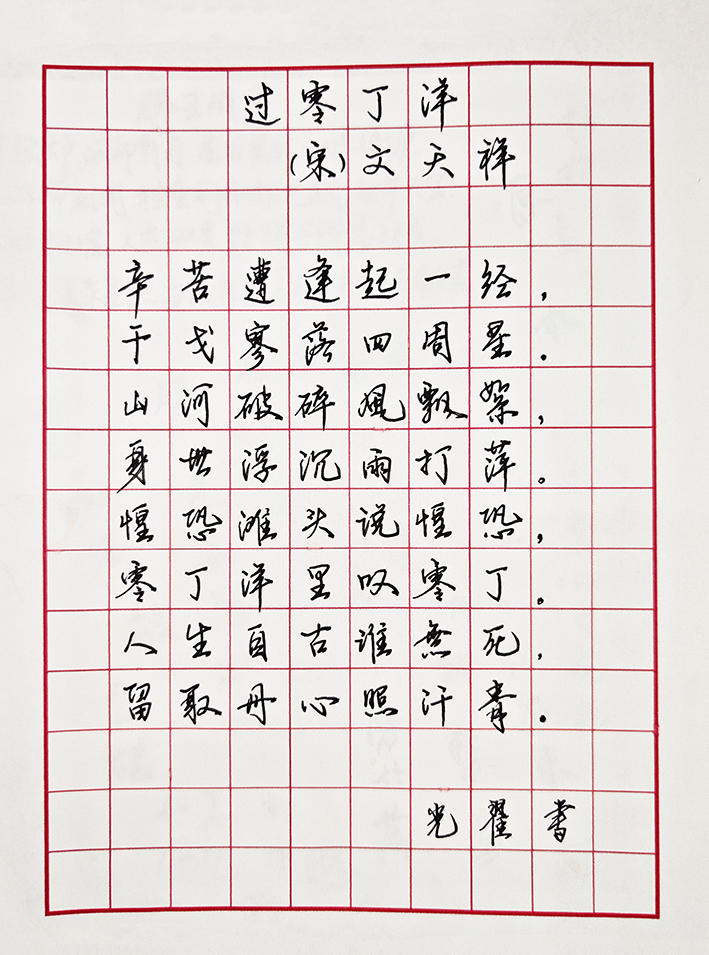 过零丁洋
(宋)文天祥
辛苦遭逢起一经,
干戈寥落四周星.
山河破碎风飘絮,
身世浮沉雨打萍。
惶恐滩头说惶恐,
零丁洋里叹零丁。
人生自古谁無死,
留取丹心照汗青.
光翟书